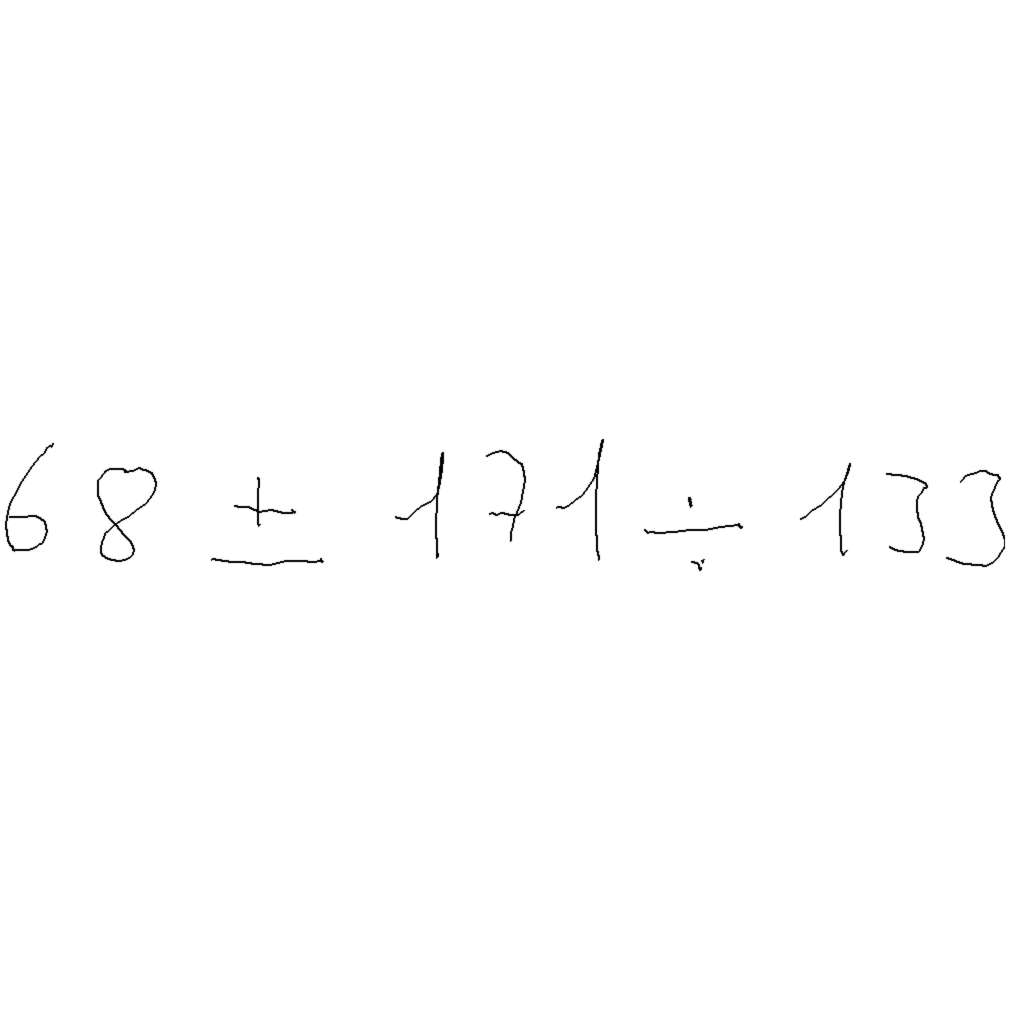 68 ± 171 ÷ 133